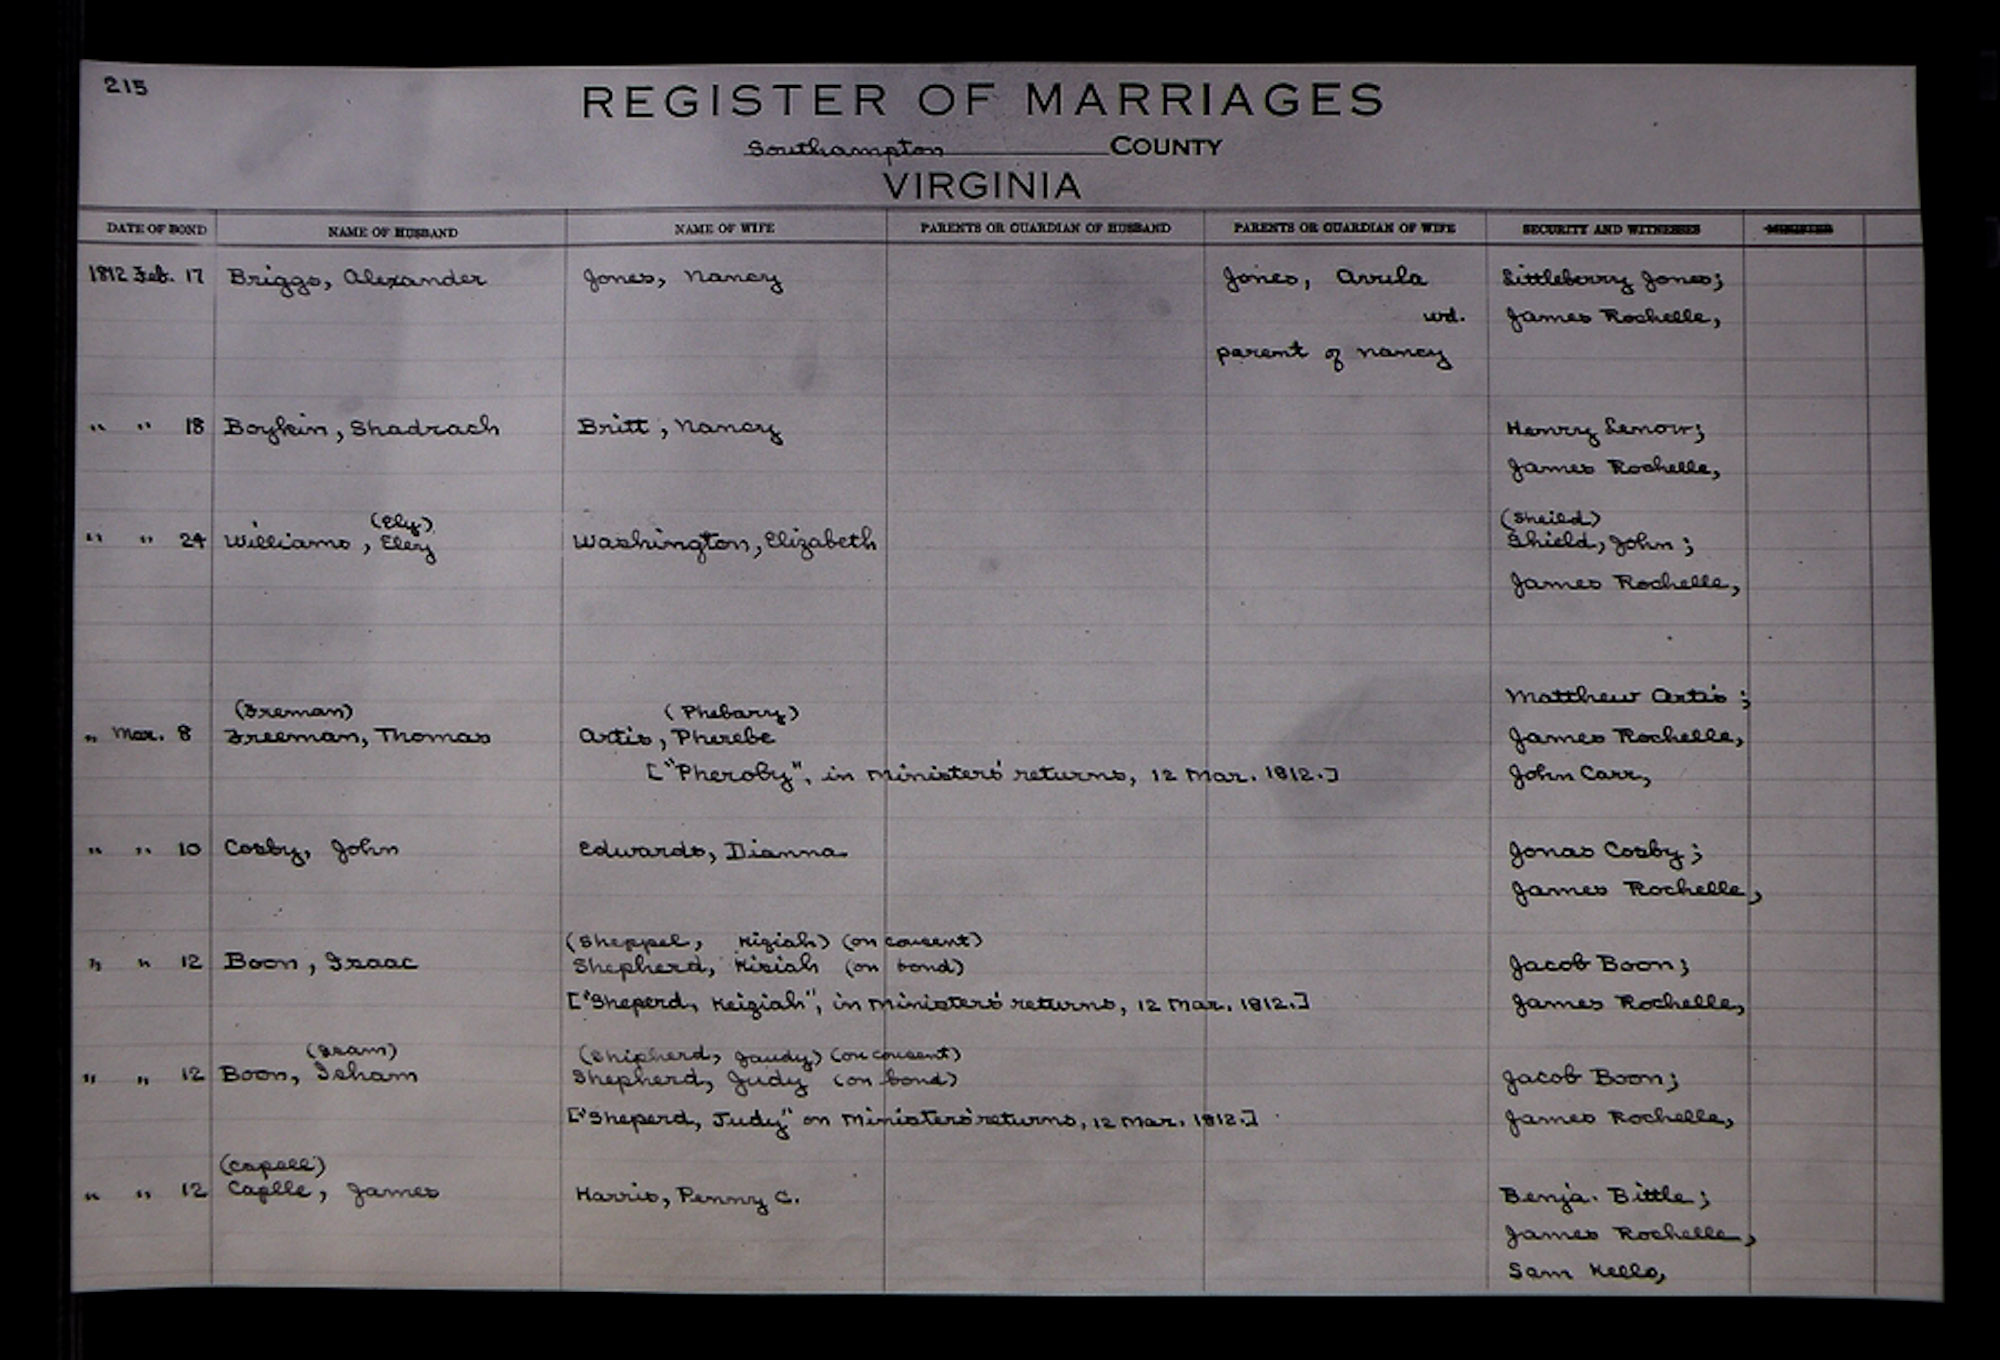 215
REGISTER OF MARRIAGES
Southampton COUNTY
VIRGINIA
DATE OF BOND NAME OF HUSBAND NAME OF WIFE PARENTS OR GUARDIAN OF HUSBAND PARENTS OR GUARDIAN OF WIFE SECURITY AND WITNESSES MINISTER
1812 Feb. 17 Briggs, Alexander Jones, Nancy Jones, Avrila Littleberry Jones;
wd. James Rochelle,
parent of Nancy
" " 18 Boykin, Shadrach Britt, Nancy Henry Lenow;
James Rochelle,
(Ely) (Sheild)
" " 24 Williams, Eley Washington, Elizabeth Shield, John;
James Rochelle,
Matthew Artis;
(Freman) (Phebary)
" Mar. 8 Freeman, Thomas Artis, Pherebe James Rochelle,
["Pheroby", in Ministers' returns, 12 Mar. 1812.] John Carr,
" " 10 Cosby, John Edwards, Dianna Jonas Cosby;
James Rochelle,
(Sheppel, Kiziah) (on consent)
" " 12 Boon, Isaac Shepherd, Kisiah (on bond) Jacob Boon;
["Sheperd, Keiziah", in Ministers' returns, 12 Mar. 1812.] James Rochelle,
(Isam) (Shipherd, Jaudy) (on consent)
" " 12 Boon, Isham Shepherd, Judy (on bond) Jacob Boon;
["Sheperd, Judy" on Ministers' returns, 12 Mar. 1812.] James Rochelle,
(Capell)
" " 12 Caplle, James Harris, Penny C. Benja. Bittle;
James Rochelle,
Sam Kello,